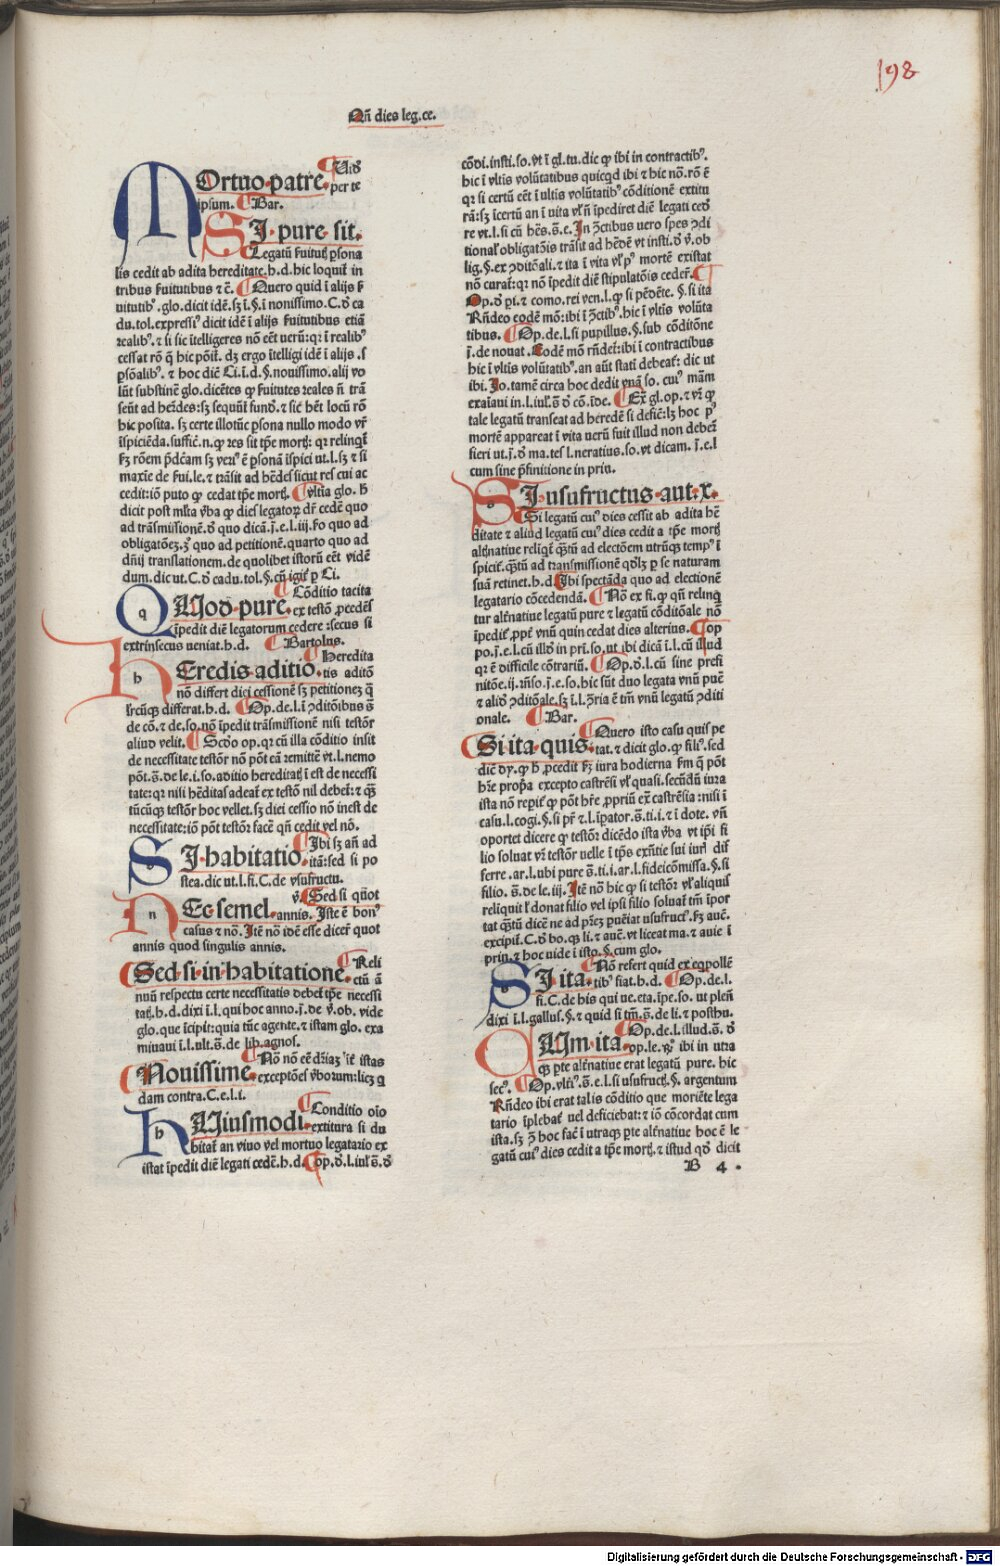 198
Qñ dies leg.ce.
MOrtuo patre. Uid
per te
ipsum. Bar.
SI pure sit.
Legatũ ẜuitut᷒ ꝑsona
lis cedit ab adita hereditate.h.d. hic loquit᷑ in
tribus ẜuitutibus ⁊ cẽ. Quero quid ĩ alijs ẜ
uitutibꝰ. glo. dicit idẽ. sꝫ ĩ.§.ĩ nouissimo.C.ð ca
du.tol. expressiꝰ dicit idẽ ĩ alijs ẜuitutibus etiã
realibꝰ. ⁊ si sic ĩtelligeres nõ eẽt uerũ: qꝛ ĩ realibꝰ
cessat rõ q̃ hic põit᷑. dꝫ ergo ĩtelligi idẽ ĩ alijs .s
ꝑsõalibꝰ. ⁊ hoc diẽ Ci.ĩ.d.§.nouissimo. alij vo
lũt substinẽ glo. dicẽtes ꝙ ẜuitutes reales ñ trã
seũt ad hẽdes: sꝫ sequũt᷑ fund. ⁊ sic hẽt locũ rõ
hic posita. sꝫ certe illotũc ꝑsona nullo modo vr̃
ĩspiciẽda. suffic᷑.n. ꝙ res sit tꝑe mort᷒: qꝛ relinqt᷑
ẜꝫ rõem p̃dcãm sꝫ veriꝰ ẽ ꝑsonã ĩspici ut.l.sꝫ ⁊ si
maxĩe de ẜui.le. ⁊ trãsit ad hẽdes sicut res cui ac
cedit: iõ puto ꝙ cedat tꝑe mort᷒. vltĩa glo. ħ
dicit post ml̃ta ỽba ꝙ dies legatoꝝ dr̃ cedẽ quo
ad trãsmissionẽ. ð quo dicã.ĩ.e.l.iij. ẜo quo ad
obligatõeꝫ. ꝫ quo ad petitionẽ. quarto quo ad
dñij translationem. de quolibet istorũ eẽt vidẽ
dum. dic ut.C.ð cadu.tol.§.cũ igit᷑ ꝑ Ci.
QUod pure. Cõditio tacita
ex testõ ꝓcedẽs
ĩpedit diẽ legatorum cedere : secus si
extrinsecus ueniat.h.d. Bartolus.
HEredis aditio. Heredita
tis aditõ
nõ differt dici cessionẽ sꝫ petitioneꝫ q̃
ẜcũqꝫ differat.h.d. Op.de.l.ĩ ꝯditõibus s̃
de cõ. ⁊ de.so. nõ ĩpedit trãsmissionẽ nisi testõr
aliud velit. Scðo op. qꝛ cũ illa cõditio insit
de necessitate testõr nõ põt eã remittẽ vt.l.nemo
põt.s̃.de le.i. so. aditio hereditat᷒ ĩ est de necessi
tate: qꝛ nisi hẽditas adeat᷑ ex testõ nil debet᷑: ⁊ qꝫ
tũcũqꝫ testõr hoc vellet. sꝫ dici cessio nõ inest de
necessitate: iõ põt testõr facẽ qñ cedit vel nõ.
SI habitatio. Ibi sꝫ añ ad
itã: sed si po
stea. dic ut.l.fi.C.de vsufructu.
NEc semel. v̉. Sed si qũot
annis. Iste ẽ bonꝰ
casus ⁊ nõ. Itẽ nõ idẽ esse dicer̃ quot
annis quod singulis annis.
Sed si in habitatione. Reli
ctũ ã
nuũ respectu certe necessitatis debet᷑ tꝑe necessi
tat᷒.h.d. dixi ĩ.l.qui hoc anno.ĩ.de v̉.ob. vide
glo. que ĩcipit: quia tũc agente. ⁊ istam glo. exa
minaui ĩ.l.ult.s̃.de lib.agnos.
Nouissime. Nõ nõ eẽ ðriaꝫ ĩt᷑ istas
exceptões ỽborum: licꝫ q
dam contra.C.e.l.i.
HUiusmodi. Conditio oĩo
extitura si du
bitat᷑ an viuo vel mortuo legatario ex
istat ĩpedit diẽ legati cedẽ.h.d. op.ð.l.iul̃.s̃.ð
cõdi.insti.so. vt ĩ gl̃.tu. dic ꝙ ibi in contractibꝰ.
hic ĩ vltis volũtatibus quicqd ibi ⁊ hic nõ. rõ ẽ
qꝛ si certũ eẽt ĩ ultis volũtatibꝰ cõditionẽ extitu
rã: sꝫ ĩcertũ an ĩ uita vl̃ ñ ĩpediret diẽ legati ceð
re vt.l.si cũ hẽs.s̃.e. In ꝯctibus uero spes ꝯdi
tionat᷑ obligatõis trãsit ad hẽdẽ vt insti.ð v̉.ob
lig.§.ex ꝯditõali. ⁊ ita ĩ vita vl̃ pꝰ mortẽ existat
nõ curat᷑: qꝛ nõ ĩpedit diẽ stipulatõis cedeř.
Op.ð pi. ⁊ como. rei ven.l.ꝙ si pẽdẽte.§.si ita
Rñdeo eodẽ mõ: ibi ĩ ꝯctibꝰ. hic ĩ vltis volũta
tibus. Op.de.l.si pupillus.§.sub cõditõne
ĩ.de nouat. Eodẽ mõ rñdet᷑: ibi ĩ contractibus
hic ĩ vltis volũtatibꝰ. an aũt stati debeat᷑: dic ut
ibi. Io. tamẽ circa hoc dedit vnã so. cuiꝰ mãm
exaĩaui in.l.iul̃.s̃ ð cõ.ĩde. Ex̃ gl.op. ⁊ vr̃ ꝙ
tale legatũ transeat ad heredẽ si defic᷑: lꝫ hoc pꝰ
mortẽ appareat ĩ vita uerũ fuit illud non debeř
fieri ut.ĩ.ð ma.tes l.neratius.so. vt dicam.ĩ.e.l
cum sine p̃finitione in prin.
SI usufructus aut.x.
Si legatũ cuiꝰ dies cessit ab adita hẽ
ditate ⁊ aliud legatũ cuiꝰ dies cedit a tꝑe mort᷒
alťnatiue reliqt᷑ qꝫtũ ad electõem utrũqꝫ tempꝰ ĩ
spicit᷑. qꝫtũ ad transmissionẽ qðlꝫ ꝑ se naturam
suã retinet.h.d. Ibi spectãda quo ad electionẽ
legatario cõcedendã. Nõ ex fi. ꝙ qñ relinq
tur alťnatiue legatũ pure ⁊ legatũ cõditõale nõ
ĩpedit᷑. ꝓpť vnũ quin cedat dies alterius. op
po.ĩ.e.l.cũ illð in pri.so. ut ibi dicã ĩ.l.cũ illud
qꝛ ẽ difficile cõtrariũ. Op.ð.l.cũ sine prefi
nitõe.ij.rñso.ĩ.e.so. hic sũt duo legata vnũ puẽ
⁊ alið ꝯditõale. sꝫ ĩ.l.ꝯria ẽ tm̃ vnũ legatũ ꝯditi
onale. Bar.
Si ita quis. Quero isto casu quis pe
tat. ⁊ dicit glo. ꝙ filiꝰ. sed
diẽ dy. ꝙ ħ ꝓcedit ẜꝫ iura hodierna ẜm q̃ põt
hr̃e prop̃a excepto castrẽsi vl̃ quasi. secũdũ iura
ista nõ repit᷑ ꝙ põt hr̃e ꝓpriũ ex̃ castrẽsia : nisi ĩ
casu.l.cogi.§.si pr̃ ⁊.l.ĩpator.s̃.ti.i. ⁊ ĩ dote. vñ
oportet dicere ꝙ testõr dicẽdo ista ỽba vt ipĩ fi
lio soluat vr̃ testõr uelle ĩ tꝑs exñtie sui iurꝭ dif
ferre .ar.l.ubi pure s̃.ti.i. ar.l.fideicõmissa.§.si
filio.s̃.de le.iij. Itẽ nõ hic ꝙ si testõr vl̃ aliquis
reliquit l̃ donat filio vel ipsi filio soluat᷑ tm̃ ĩpor
tat qꝫtũ dicẽ ne ad pr̃eꝫ ꝑueĩat usufructꝰ. ẜꝫ auẽ.
excipit᷑.C.ð bo.qꝫ li. ⁊ auẽ. vt liceat ma. ⁊ auie ĩ
prin. ⁊ hoc uide ĩ isto.§.cum glo.
SI ita. Nõ refert quid ex eqpollẽ
tibꝰ fiat.h.d. Op.de.l.
fi.C.de his qui ue.eta.ĩpe.so. ut pleñ
dixi ĩ.l.gallus.§.⁊ quid si tm̃.s̃.de li. ⁊ posthu.
CUm ita. Op.de.l.illud.s̃.ð
op.le. Rř ibi in utra
qꝫ ꝑte alťnatiue erat legatũ pure. hic
secꝰ. Op.vltiꝰ.s̃.e.l.si usufruct᷒.§.argentum
Rñdeo ibi erat talis cõditio que moriẽte lega
tario ĩplebat᷑ uel deficiebat: ⁊ iõ cõcordat cum
ista. sꝫ ꝯ̃ hoc fac᷑ ĩ utraqꝫ ꝑte alťnatiue hoc ẽ le
gatũ cuiꝰ dies cedit a tꝑe mort᷒. ⁊ istud qð dicit
B 4.
Digitalisierung gefördert durch die Deutsche Forschungsgemeinschaft - DFG